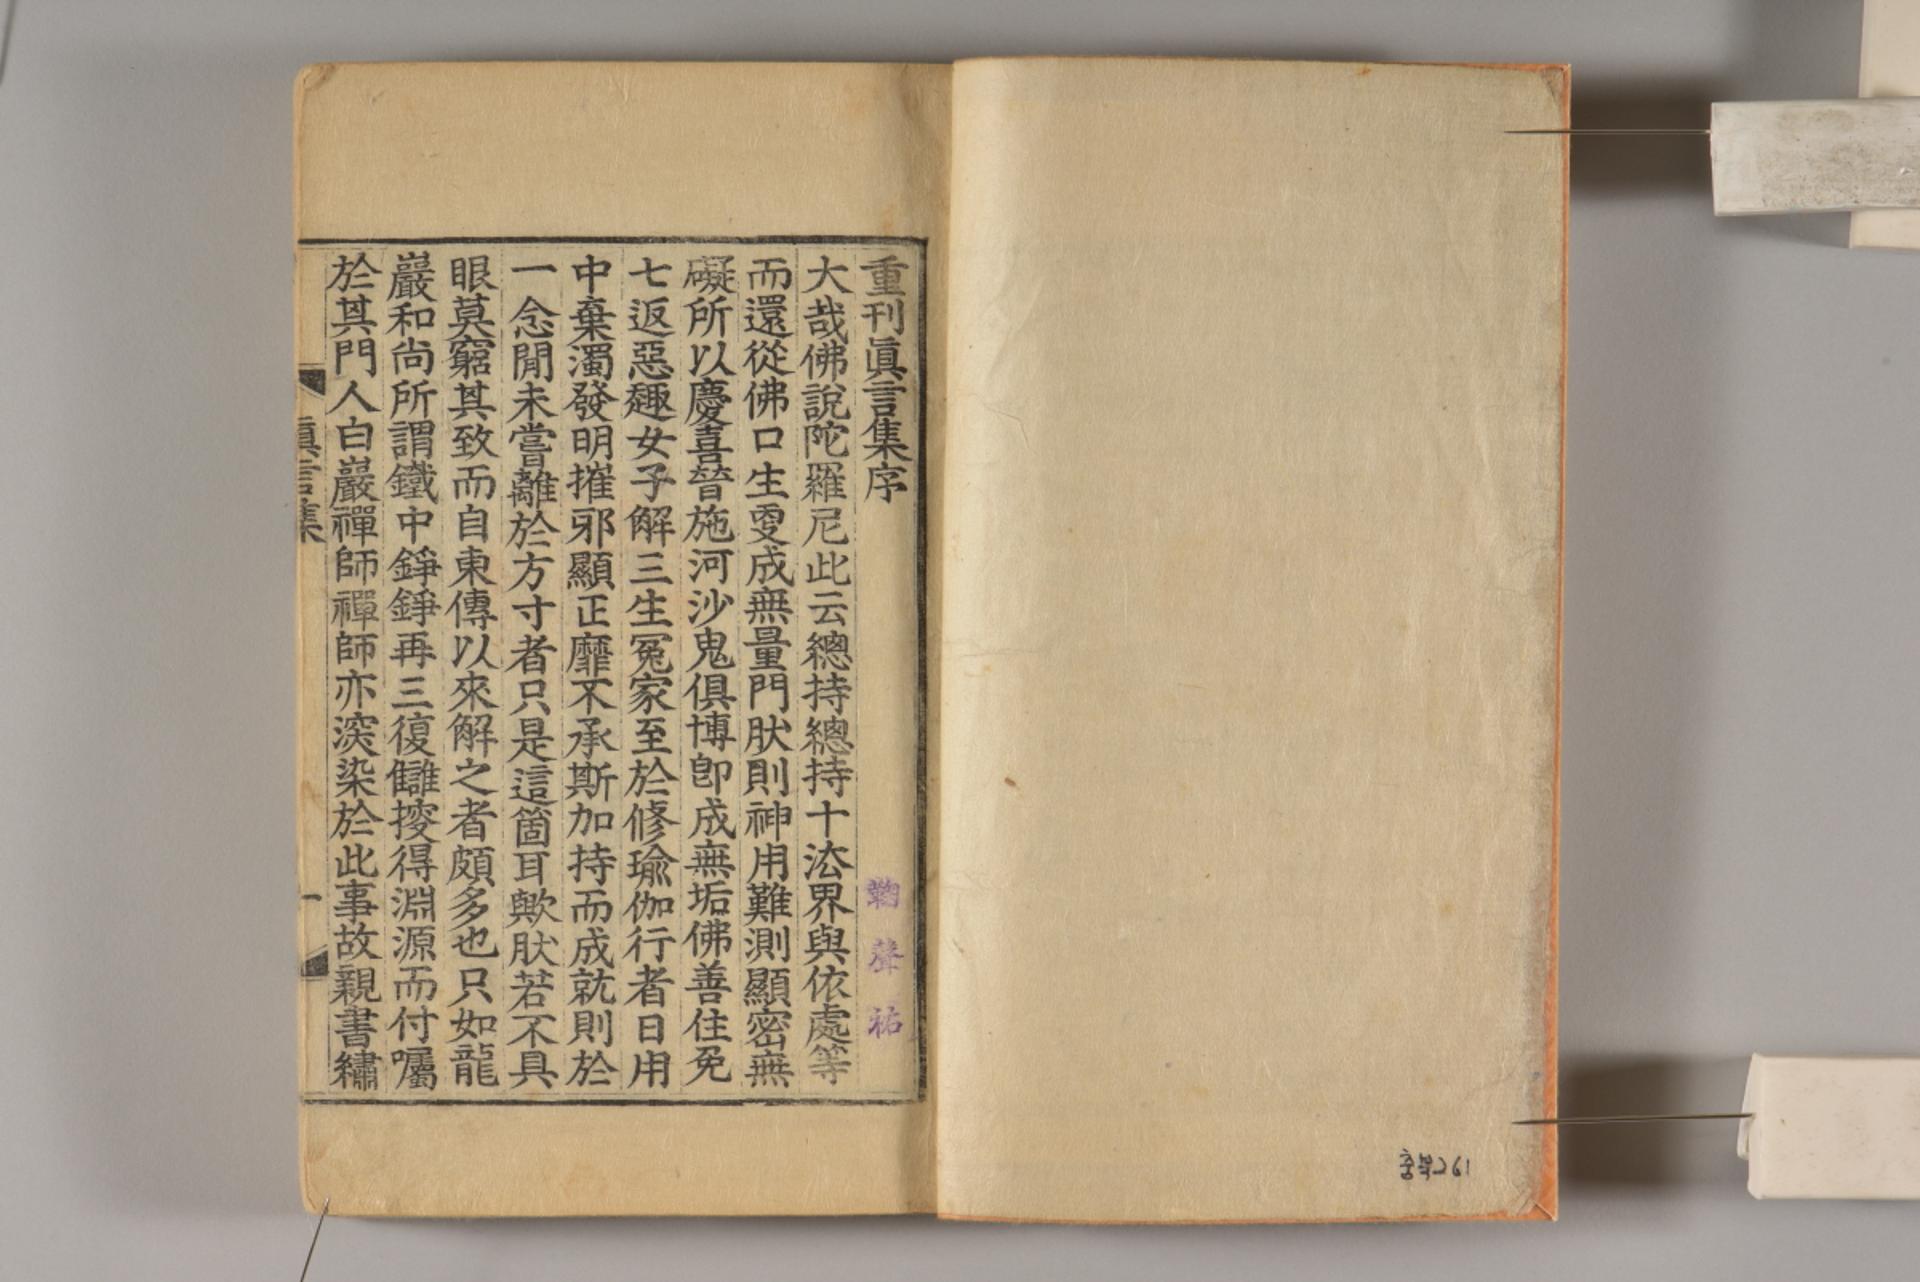 중부261
重刊眞言集序
鞠聲祐
大哉佛說陀羅尼此云總持總持十法界與依處等
而還從佛口生叓成無量門肰則神用難測顯密無
礙所以慶喜晉施河沙鬼俱博卽成無垢佛善住免
七返惡趣女子解三生冤家至於修瑜伽行者日用
中棄濁發明摧邪顯正靡不承斯加持而成就則於
一念閒未嘗離於方寸者只是這箇耳歟肰若不具
眼莫窮其致而自東傳以來解之者頗多也只如龍
巖和尙所謂鐵中錚錚再三復讎挍得淵源而付囑
於其門人白巖禪師禪師亦深染於此事故親書繡
眞言集
一